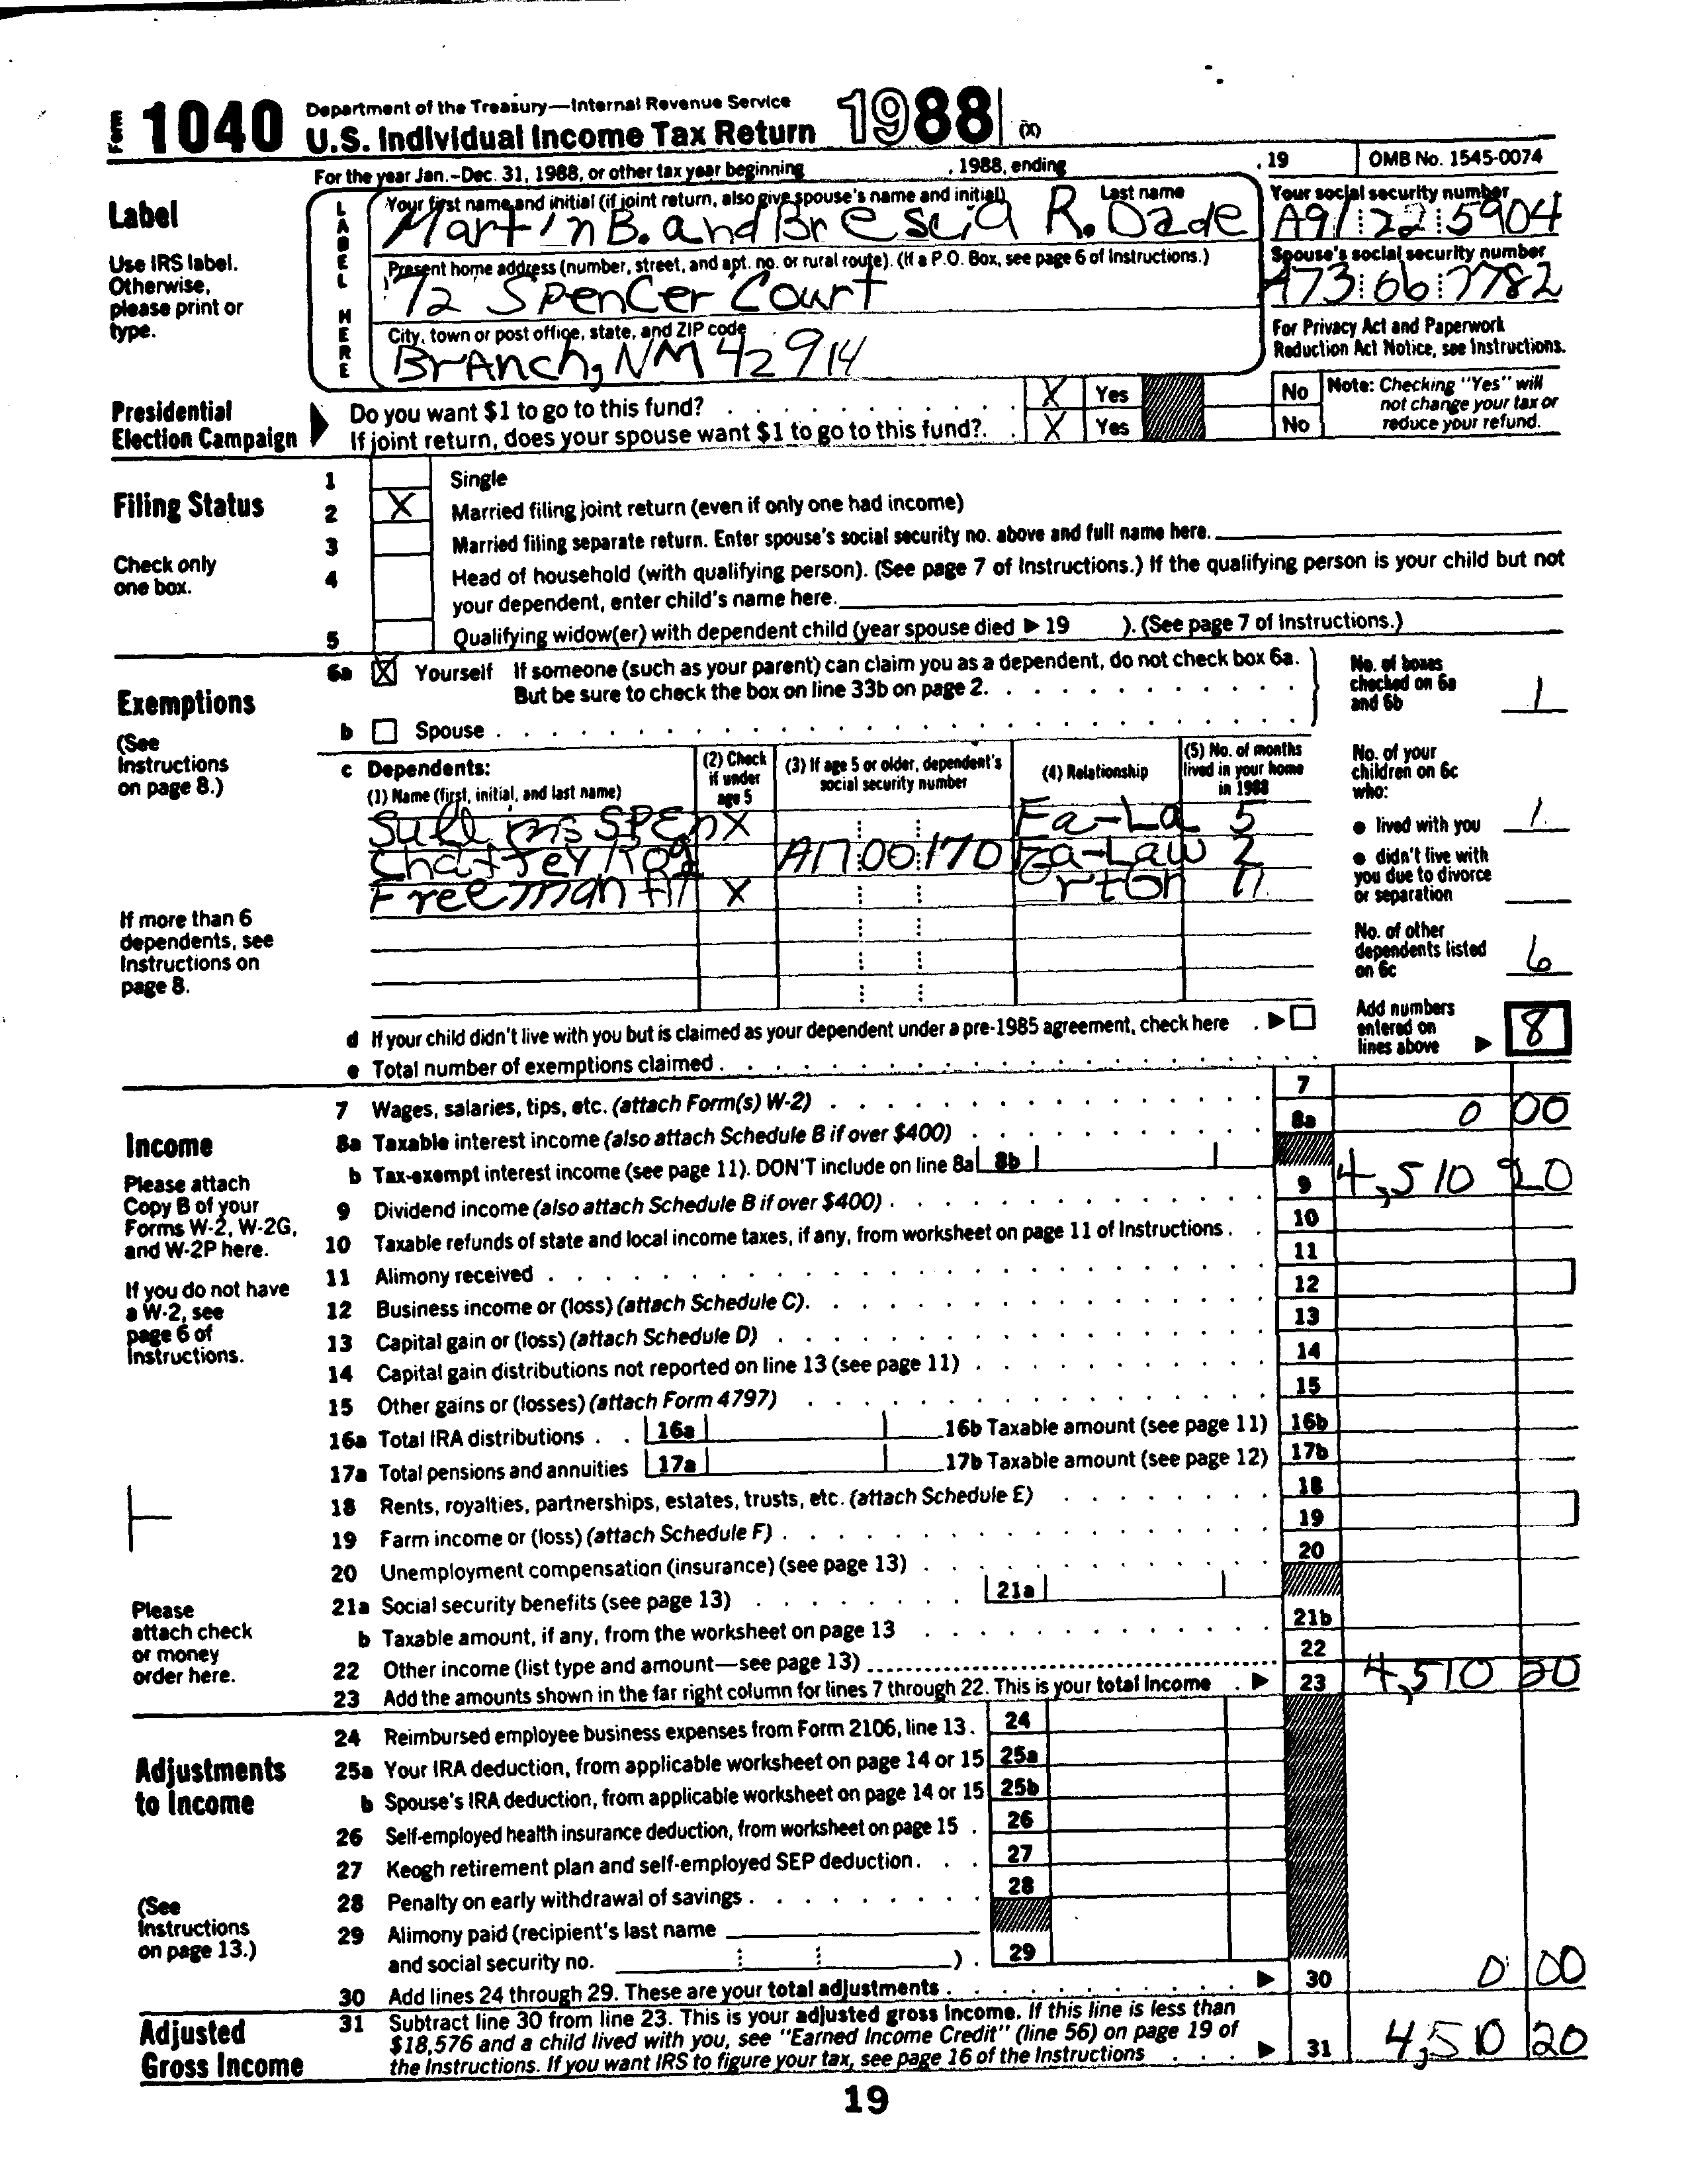 Form 1040 Department of the Treasury—Internal Revenue Service
U.S. Individual Income Tax Return 1988 (X)
For the year Jan.-Dec. 31, 1988, or other tax year beginning , 1988, ending , 19 OMB No. 1545-0074
Label
Use IRS label. Otherwise, please print or type.
LABEL HERE
Your first name and initial (if joint return, also give spouse's name and initial) Last name
Martin B. and Brescia R. Dade
Your social security number
A91 22 5904
Present home address (number, street, and apt. no. or rural route). (If a P.O. Box, see page 6 of Instructions.)
72 Spencer Court
Spouse's social security number
A73 66 7782
City, town or post office, state, and ZIP code
Branch, NM 42914
For Privacy Act and Paperwork Reduction Act Notice, see Instructions.
Presidential Election Campaign
Do you want $1 to go to this fund? X Yes No
If joint return, does your spouse want $1 to go to this fund?. X Yes No
Note: Checking "Yes" will not change your tax or reduce your refund.
Filing Status
Check only one box.
1 Single
2 X Married filing joint return (even if only one had income)
3 Married filing separate return. Enter spouse's social security no. above and full name here.
4 Head of household (with qualifying person). (See page 7 of Instructions.) If the qualifying person is your child but not
your dependent, enter child's name here.
5 Qualifying widow(er) with dependent child (year spouse died ▶ 19 ). (See page 7 of Instructions.)
Exemptions
(See Instructions on page 8.)
6a X Yourself If someone (such as your parent) can claim you as a dependent, do not check box 6a.
But be sure to check the box on line 33b on page 2.
b Spouse
No. of boxes checked on 6a and 6b 1
c Dependents:
(1) Name (first, initial, and last name)
(2) Check if under age 5
(3) If age 5 or older, dependent's social security number
(4) Relationship
(5) No. of months lived in your home in 1988
SPEn X Fa-La 5
Chaffey A17 00 170 Fa-Law 2
Freeman X rtGn 11
If more than 6 dependents, see Instructions on page 8.
No. of your children on 6c who:
● lived with you 1
● didn't live with you due to divorce or separation
No. of other dependents listed on 6c 6
d If your child didn't live with you but is claimed as your dependent under a pre-1985 agreement, check here . ▶
e Total number of exemptions claimed
Add numbers entered on lines above ▶ 8
Income
Please attach Copy B of your Forms W-2, W-2G, and W-2P here.
If you do not have a W-2, see page 6 of Instructions.
Please attach check or money order here.
7 Wages, salaries, tips, etc. (attach Form(s) W-2) 7
8a Taxable interest income (also attach Schedule B if over $400) 8a 0 00
b Tax-exempt interest income (see page 11). DON'T include on line 8a 8b
9 Dividend income (also attach Schedule B if over $400) 9 4,510 20
10 Taxable refunds of state and local income taxes, if any, from worksheet on page 11 of Instructions 10
11 Alimony received 11
12 Business income or (loss) (attach Schedule C). 12
13 Capital gain or (loss) (attach Schedule D) 13
14 Capital gain distributions not reported on line 13 (see page 11) 14
15 Other gains or (losses) (attach Form 4797) 15
16a Total IRA distributions 16a 16b Taxable amount (see page 11) 16b
17a Total pensions and annuities 17a 17b Taxable amount (see page 12) 17b
18 Rents, royalties, partnerships, estates, trusts, etc. (attach Schedule E) 18
19 Farm income or (loss) (attach Schedule F) 19
20 Unemployment compensation (insurance) (see page 13) 20
21a Social security benefits (see page 13) 21a
b Taxable amount, if any, from the worksheet on page 13 21b
22 Other income (list type and amount—see page 13) 22
23 Add the amounts shown in the far right column for lines 7 through 22. This is your total income ▶ 23 4,510 20
Adjustments to Income
(See Instructions on page 13.)
24 Reimbursed employee business expenses from Form 2106, line 13. 24
25a Your IRA deduction, from applicable worksheet on page 14 or 15 25a
b Spouse's IRA deduction, from applicable worksheet on page 14 or 15 25b
26 Self-employed health insurance deduction, from worksheet on page 15 26
27 Keogh retirement plan and self-employed SEP deduction 27
28 Penalty on early withdrawal of savings 28
29 Alimony paid (recipient's last name
and social security no. ) 29
30 Add lines 24 through 29. These are your total adjustments ▶ 30 0 00
Adjusted Gross Income
31 Subtract line 30 from line 23. This is your adjusted gross income. If this line is less than
$18,576 and a child lived with you, see "Earned Income Credit" (line 56) on page 19 of
the Instructions. If you want IRS to figure your tax, see page 16 of the Instructions ▶ 31 4,510 20
19